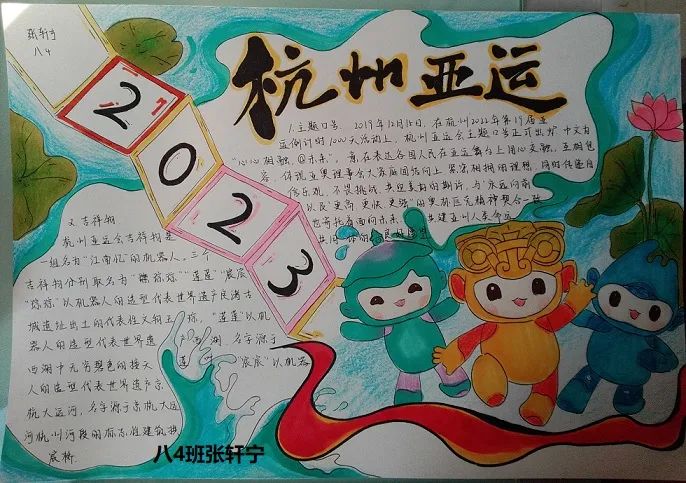 张轩宁
八4
2023
杭州亚运
1.主题口号. 2019年12月15日,在杭州2022年第19届亚
运倒计时1000天活动上,杭州亚运会主题口号正式出炉 中文为
“心心相融,@未来”,意在表达各国人民在亚运舞台上用心交融,互相包
容,体现亚奥理事会大家庭团结向上 紧密相拥的理想,同时传递自
信乐观,不畏挑战,共迎美好的期许,与“永远向前
以及“更高 更快 更强”的奥林匹克精神契合一致
也寄托着面向未来 共建亚洲人类命运
共同体的良好愿望
2.吉祥物
杭州亚运会吉祥物是
一组名为“江南忆”的机器人,三个
吉祥物分别取名为“琮琮”“莲莲”“宸宸”
“琮琮”以机器人的造型代表世界遗产良渚古
城遗址出土的代表性文物玉琮,“莲莲”以机
器人的造型代表世界遗 西湖,名字源于
西湖中无穷碧色的接天 “宸宸”以机器
人的造型代表世界遗产京
杭大运河,名字源于京杭大运
河杭州河段的标志性建筑拱
宸桥.
八4班张轩宁